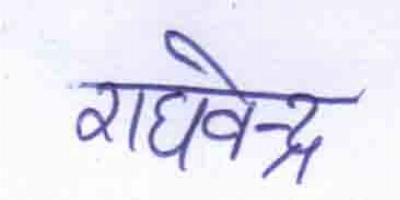 राघवेन्द्र